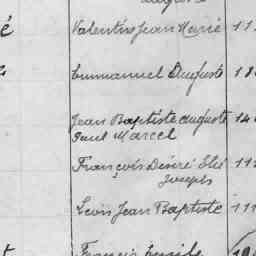 Valentin Jean Marie 11
Emmanuel Auguste 18
Jean Baptiste Auguste 14
Paul Marcel
François Désiré Eloi 11
Joseph
Léon Jean Baptiste 111
Francis